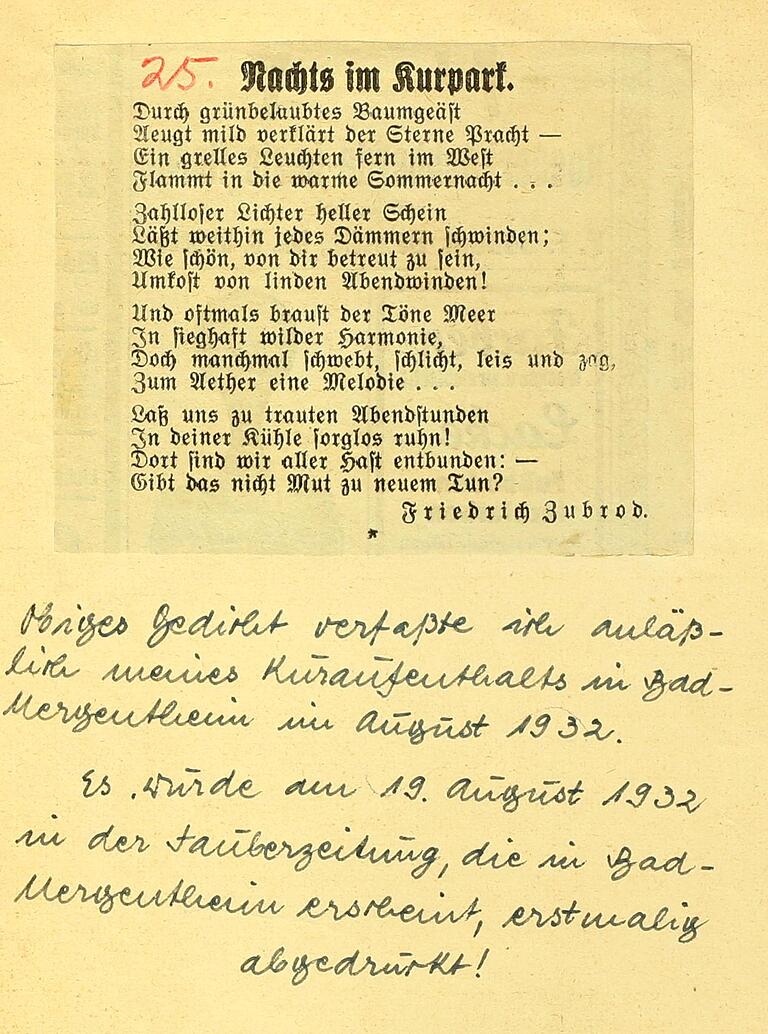 25. Nachts im Kurpark.
Durch grünbelaubtes Baumgeäst
Aeugt mild verklärt der Sterne Pracht —
Ein grelles Leuchten fern im West
Flammt in die warme Sommernacht . . .
Zahlloser Lichter heller Schein
Läßt weithin jedes Dämmern schwinden;
Wie schön, von dir betreut zu sein,
Umkost von linden Abendwinden!
Und oftmals braust der Töne Meer
In sieghaft wilder Harmonie,
Doch manchmal schwebt, schlicht, leis und zag,
Zum Aether eine Melodie . . .
Laß uns zu trauten Abendstunden
In deiner Kühle sorglos ruhn!
Dort sind wir aller Hast entbunden: —
Gibt das nicht Mut zu neuem Tun?
Friedrich Zubrod.
*
Obiges Gedicht verfaßte ich anläß-
lich meines Kuraufenthalts in Bad-
Mergentheim im August 1932.
Es wurde am 19. August 1932
in der Tauberzeitung, die in Bad-
Mergentheim erscheint, erstmalig
abgedruckt!